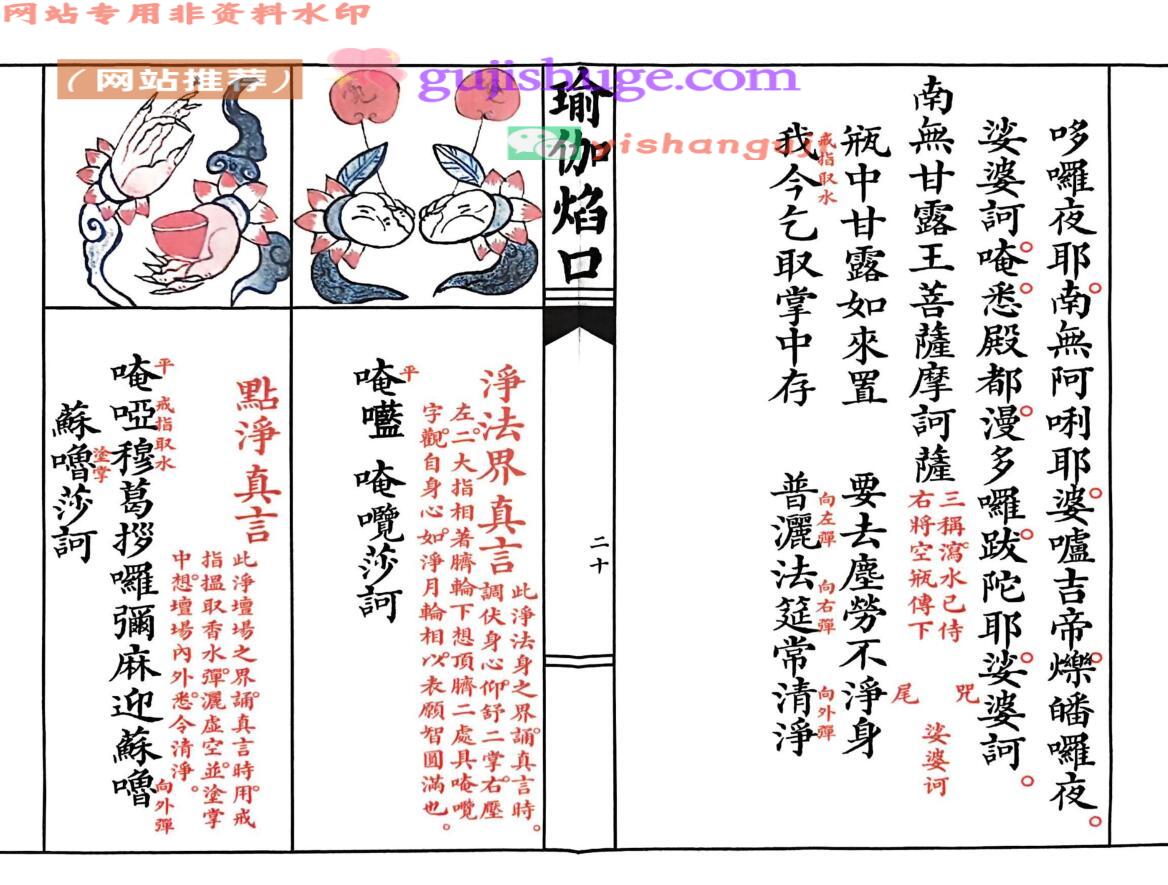 网站专用非资料水印
(网站推荐)
gujishuge.com
yishanguji
哆囉夜耶。南無阿唎耶。婆嚧吉帝。爍皤囉夜。
娑婆訶。唵。悉殿都。漫多囉。跋陀耶。娑婆訶。
南無甘露王菩薩摩訶薩
三稱瀉水已侍
右將空瓶傳下
咒
娑婆诃
尾
瓶中甘露如來置 要去塵勞不淨身
戒指取水 向左彈 向右彈 向外彈
我今乞取掌中存 普灑法筵常清淨
瑜伽焰口
二十
淨法界真言
此淨法身之界。誦真言時。
調伏身心。仰舒二掌。右壓
左。二大指相著臍輪下。想頂臍二處具唵㘕
字。觀自身心如淨月輪相。以表願智圓滿也。
平
唵㘕 唵㘕莎訶
點淨真言
此淨壇場之界。誦真言時。用戒
指搵取香水。彈灑虛空。並塗掌
中。想壇場內外。悉令清淨。
平 戒指取水 向外彈
唵啞穆葛拶囉彌麻迎蘇嚕
塗掌
蘇嚕莎訶